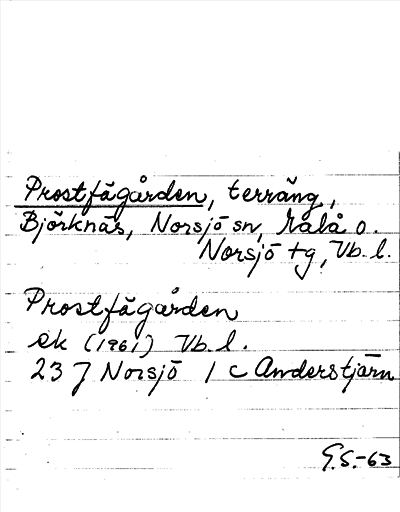 Prostfägården, terräng,
Björknäs, Norsjö sn, Malå o.
Norsjö tg, Vb. l.
Prostfägården
ek (1961) Vb. l.
23 J Norsjö 1 c Anderstjärn
G.S.-63